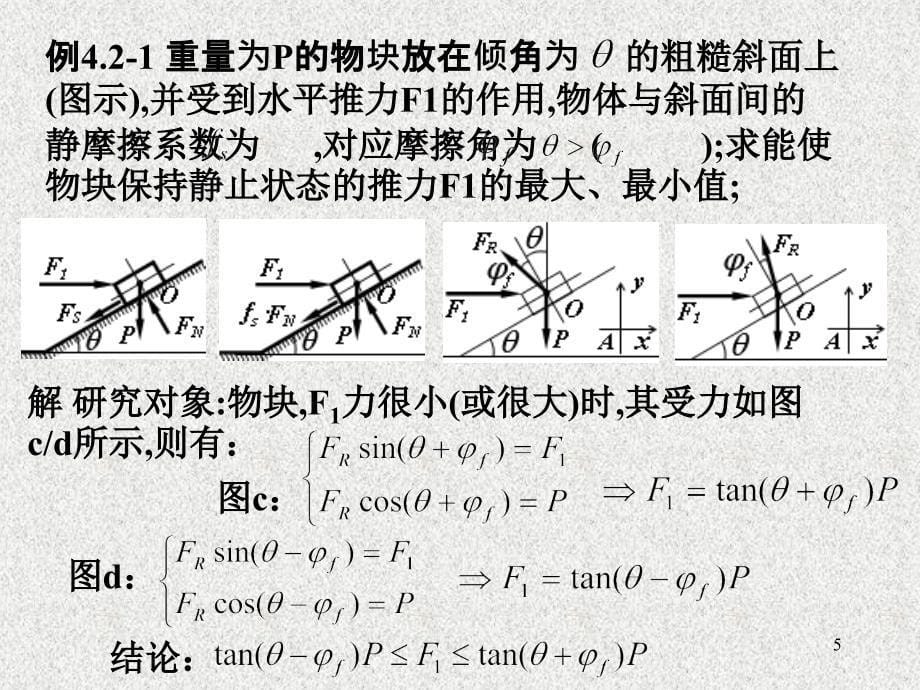 例4.2-1 重量为P的物块放在倾角为 θ 的粗糙斜面上
(图示),并受到水平推力F1的作用,物体与斜面间的
静摩擦系数为 ,对应摩擦角为 φf (θ > φf);求能使
物块保持静止状态的推力F1的最大、最小值;
F1 O FS P FN θ
F1 O fs·FN P FN θ
FR θ φf F1 O P θ y A x
φf FR F1 O P θ y A x
解 研究对象:物块,F1力很小(或很大)时,其受力如图
c/d所示,则有:
图c: { FR sin(θ+φf) = F1
FR cos(θ+φf) = P ⇒ F1 = tan(θ+φf)P
图d: { FR sin(θ−φf) = F1
FR cos(θ−φf) = P ⇒ F1 = tan(θ−φf)P
结论: tan(θ−φf)P ≤ F1 ≤ tan(θ+φf)P
5